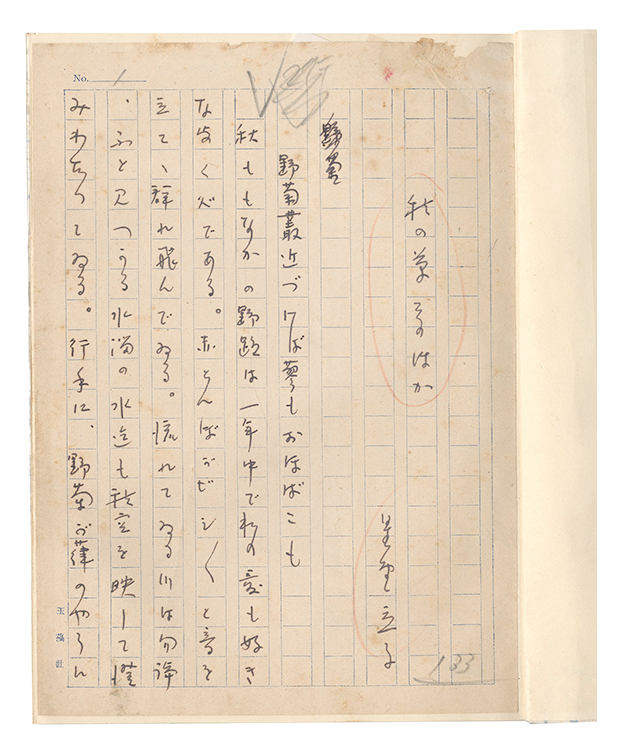 No. 1
秋の草そのほか
星野立子
野菊
野菊叢近づけば蓼もおほばこも
秋ももなかの野路は一年中で私の最も好き
な歩く所である。赤とんぼがピシ〱と音を
立てゝ群れ飛んでゐる。流れてゐる川は勿論
、ふと見つかる水溜の水迄も秋空を映して澄
みわたつてゐる。行手に、野菊が葎のやうに
玉藻社
133